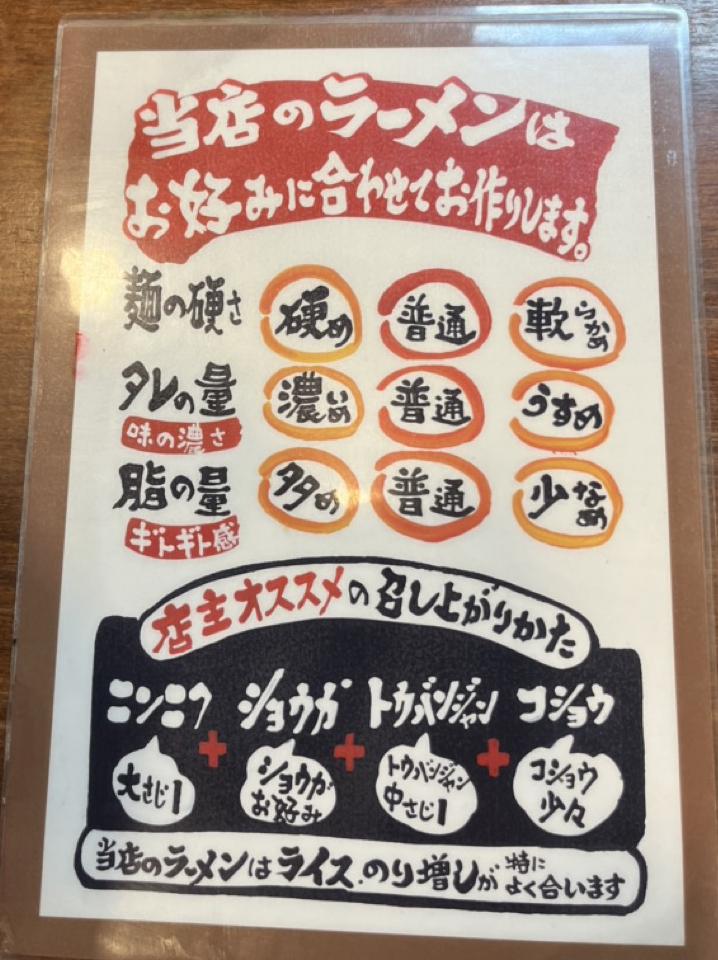 当店のラーメンは
お好みに合わせてお作りします。
麺の硬さ 硬め 普通 軟らかめ
タレの量 濃いめ 普通 うすめ
味の濃さ
脂の量 多め 普通 少なめ
ギトギト感
店主オススメの召し上がりかた
ニンニク + ショウガ + トウバンジャン + コショウ
大さじ1 ショウガお好み トウバンジャン中さじ1 コショウ少々
当店のラーメンはライス、のり増しが特によく合います